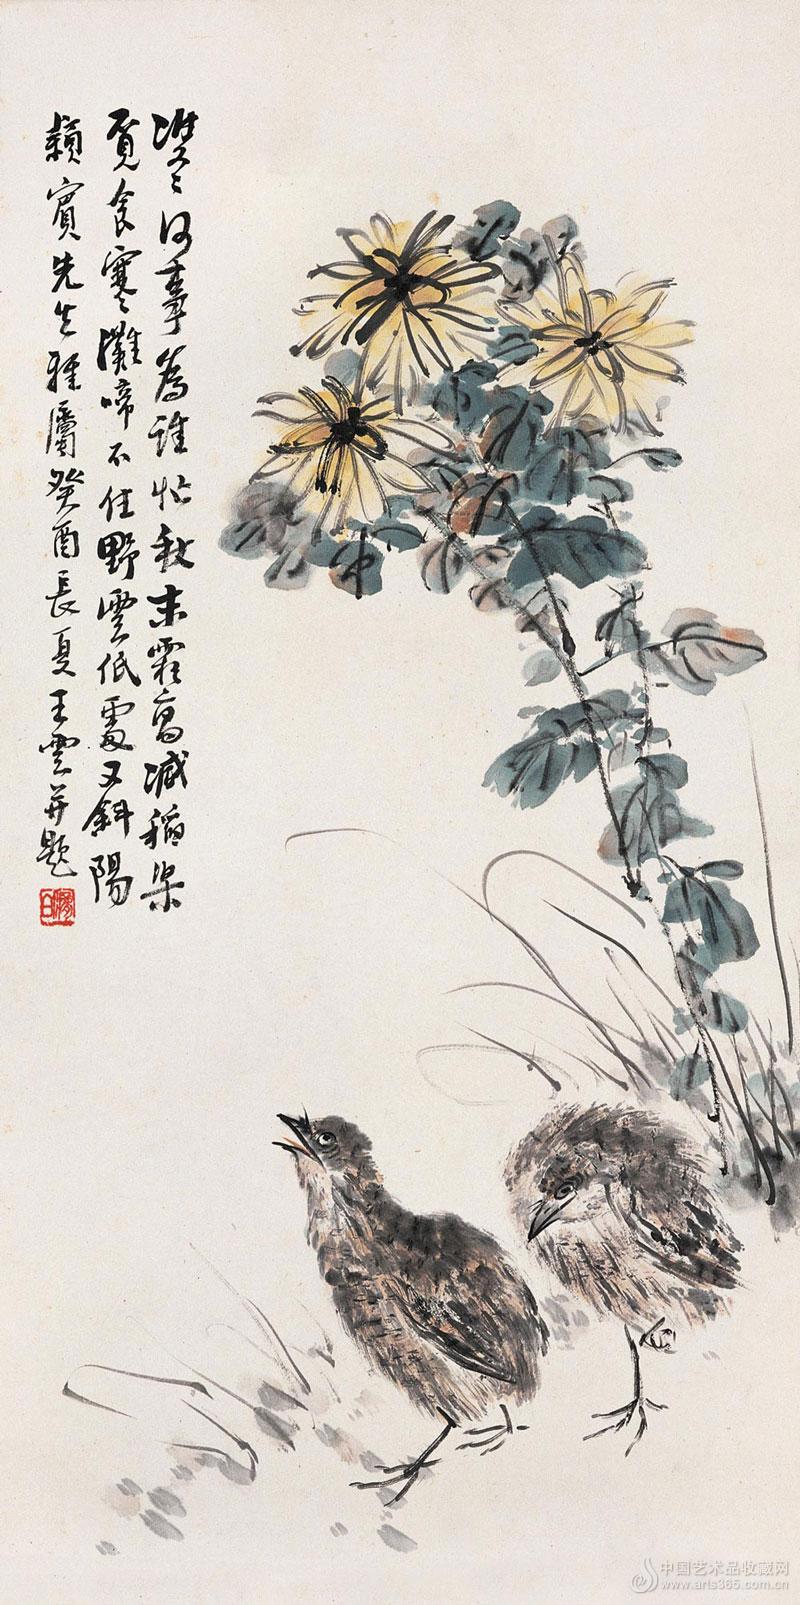 雙雙何事為誰忙秋末霜高減稻粱
覓食寒灘啼不住野雲低處又斜陽
賓先生雅屬癸酉長夏王雲并題
中国艺术品收藏网
www.arts365.com.cn